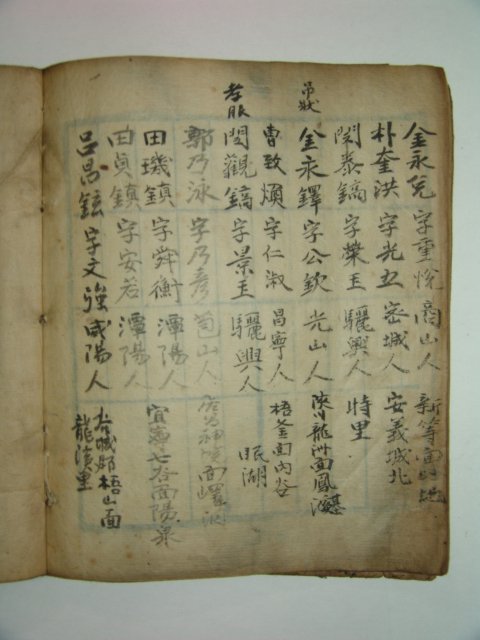 金永兌 字重悅 商山人 新等面
朴奎洪 字光五 密城人 安義城北
閔泰鎬 字榮玉 驪興人 時里
吊狀
金永鐸 字公欽 光山人 陜川龍洲面鳳
曺致煩 字仁淑 昌寧人 梧釜面內谷
孝服
閔觀鎬 字景玉 驪興人 眠湖
郭乃泳 字乃彦 苞山人
田璣鎮 字舜衡 潭陽人 宜寧七谷面陽泉
田貞鎮 字安若 潭陽人
呂昌鉉 字文強 咸陽人 居城郡梧山面
龍濱里